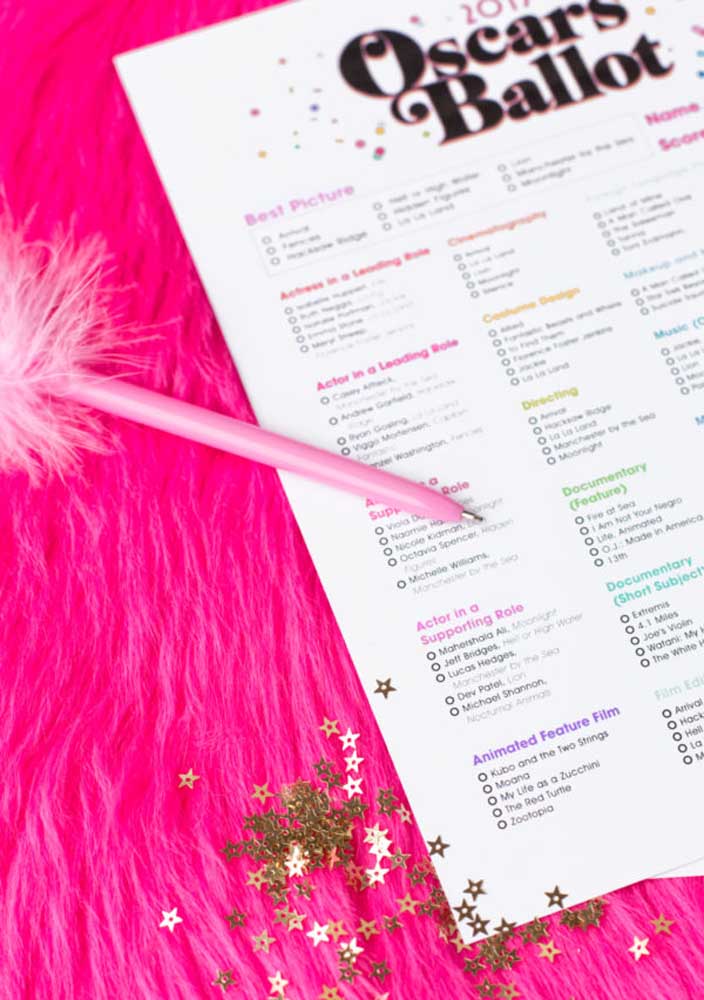 2017
Oscars
Ballot
Name
Score
Best Picture
Arrival
Fences
Hacksaw Ridge
Hell or High Water
Hidden Figures
La La Land
Lion
Manchester by the Sea
Moonlight
Actress in a Leading Role
Isabelle Huppert,
Ruth Negga,
Natalie Portman,
Emma Stone,
Meryl Streep,
Florence Foster Jenkins
Actor in a Leading Role
Casey Affleck,
Manchester by the Sea
Andrew Garfield, Hacksaw
Ridge
Ryan Gosling, La La Land
Viggo Mortensen, Captain
Fantastic
enzel Washington, Fences
a
Supp Role
Viola Da
Naomie Ha light
Nicole Kidman,
Octavia Spencer, Hidden
Figures
Michelle Williams,
Manchester by the Sea
Actor in a
Supporting Role
Mahershala Ali, Moonlight
Jeff Bridges, Hell or High Water
Lucas Hedges,
Manchester by the Sea
Dev Patel, Lion
Michael Shannon,
Nocturnal Animals
Animated Feature Film
Kubo and the Two Strings
Moana
My Life as a Zucchini
The Red Turtle
Zootopia
Cinematography
Arrival
La La Land
Lion
Moonlight
Silence
Costume Design
Allied
Fantastic Beasts and Where
to Find Them
Florence Foster Jenkins
Jackie
La La Land
Directing
Arrival
Hacksaw Ridge
La La Land
Manchester by the Sea
Moonlight
Documentary
(Feature)
Fire at Sea
I Am Not Your Negro
Life, Animated
O.J.: Made in America
13th
Documentary
(Short Subject
Extremis
4.1 Miles
Joe's Violin
Watani: My H
The White H
Film Edi
Arrival
Hack
Hell
La
M
Land of Mine
A Man Called Ove
The Salesman
Tanna
Toni Erdmann
Makeup and
A Man Called
Star Trek Bey
Suicide Squ
Music (O
Jackie,
La La L
Lion
Moo
Pas
M